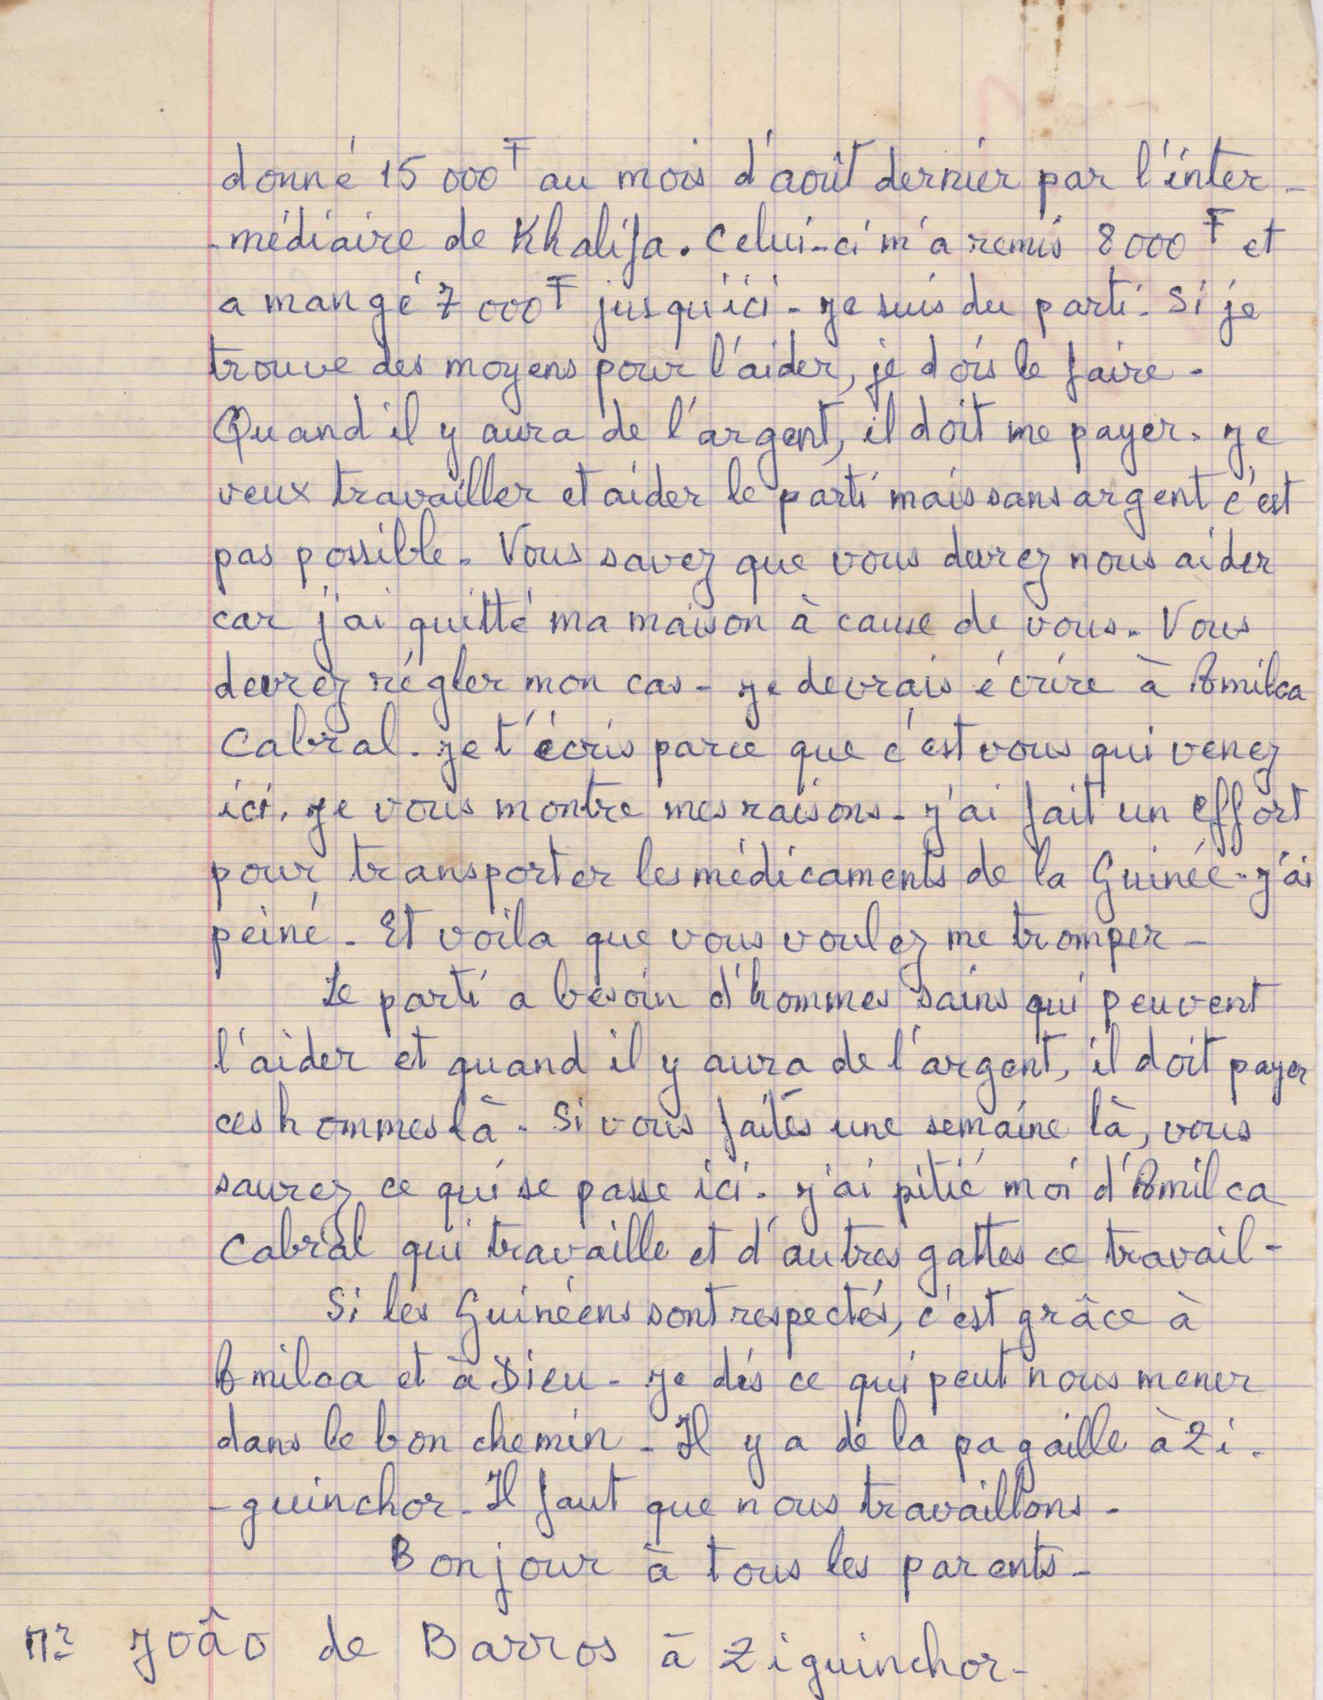 donné 15 000 F au mois d'août dernier par l'inter-
-médiaire de Khalifa. Celui-ci m'a remis 8 000 F et
a mangé 7 000 F jusqu'ici - Je suis du parti. Si je
trouve des moyens pour l'aider, je dois le faire -
Quand il y aura de l'argent, il doit me payer. Je
veux travailler et aider le parti mais sans argent c'est
pas possible. Vous savez que vous devrez nous aider
car j'ai quitté ma maison à cause de vous. Vous
devrez régler mon cas - Je devrais écrire à Amilca
Cabral. Je t'écris parce que c'est vous qui venez
ici. Je vous montre mes raisons - J'ai fait un effort
pour transporter les médicaments de la Guinée - J'ai
peiné - Et voila que vous voulez me tromper -
Le parti a besoin d'hommes sains qui peuvent
l'aider et quand il y aura de l'argent, il doit payer
ces hommes là - Si vous faites une semaine là, vous
saurez ce qui se passe ici. J'ai pitié moi d'Amilca
Cabral qui travaille et d'autres gattes ce travail -
Si les Guinéens sont respectés, c'est grâce à
Amilca et à Dieu - Je dis ce qui peut nous mener
dans le bon chemin - Il y a de la pagaille à Zi-
-guinchor - Il faut que nous travaillons -
Bonjour à tous les parents -
Mr João de Barros à Ziguinchor -